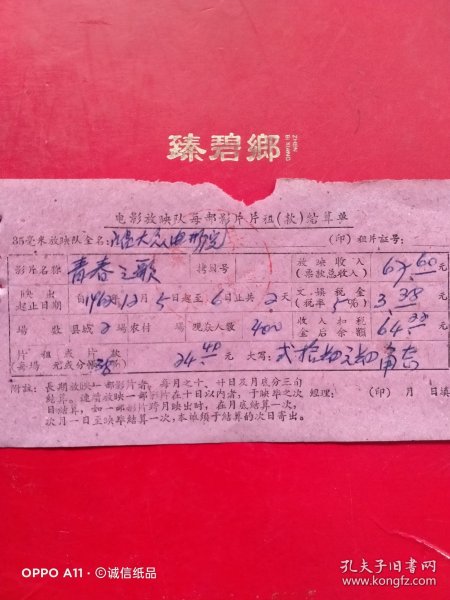 臻碧鄉
ZHEN
BI XIANG
电影放映队每部影片片租(款)结算单
35毫米放映队全名: 大众电影院 (印) 租片証号:
影片名称 青春之歌 拷贝号 放映收入(票款总收入) 67.60 元
映出起止日期 自196 年12月5日起至6日止共2天 文娱税金(税率5%) 3.38 元
場数 县城2場农村 場 观众人数 400 收入扣税金后余额 64.22 元
片租或片款(每場 元或分帐38%) 24.40 元 大写: 弍拾肆元肆角
附註: 長期放映一部影片者, 每月之十、廿日及月底分三旬 經理: (印) 月 日填
結算。邀請放映一部影片在十日以内者, 于映毕之次
日結算, 如一部影片跨月映出时, 在月底结算一次,
次月一日至映毕结算一次, 本帐须于结算的次日寄出。
OPPO A11 · ©诚信纸品
孔夫子旧书网
www.kongfz.com